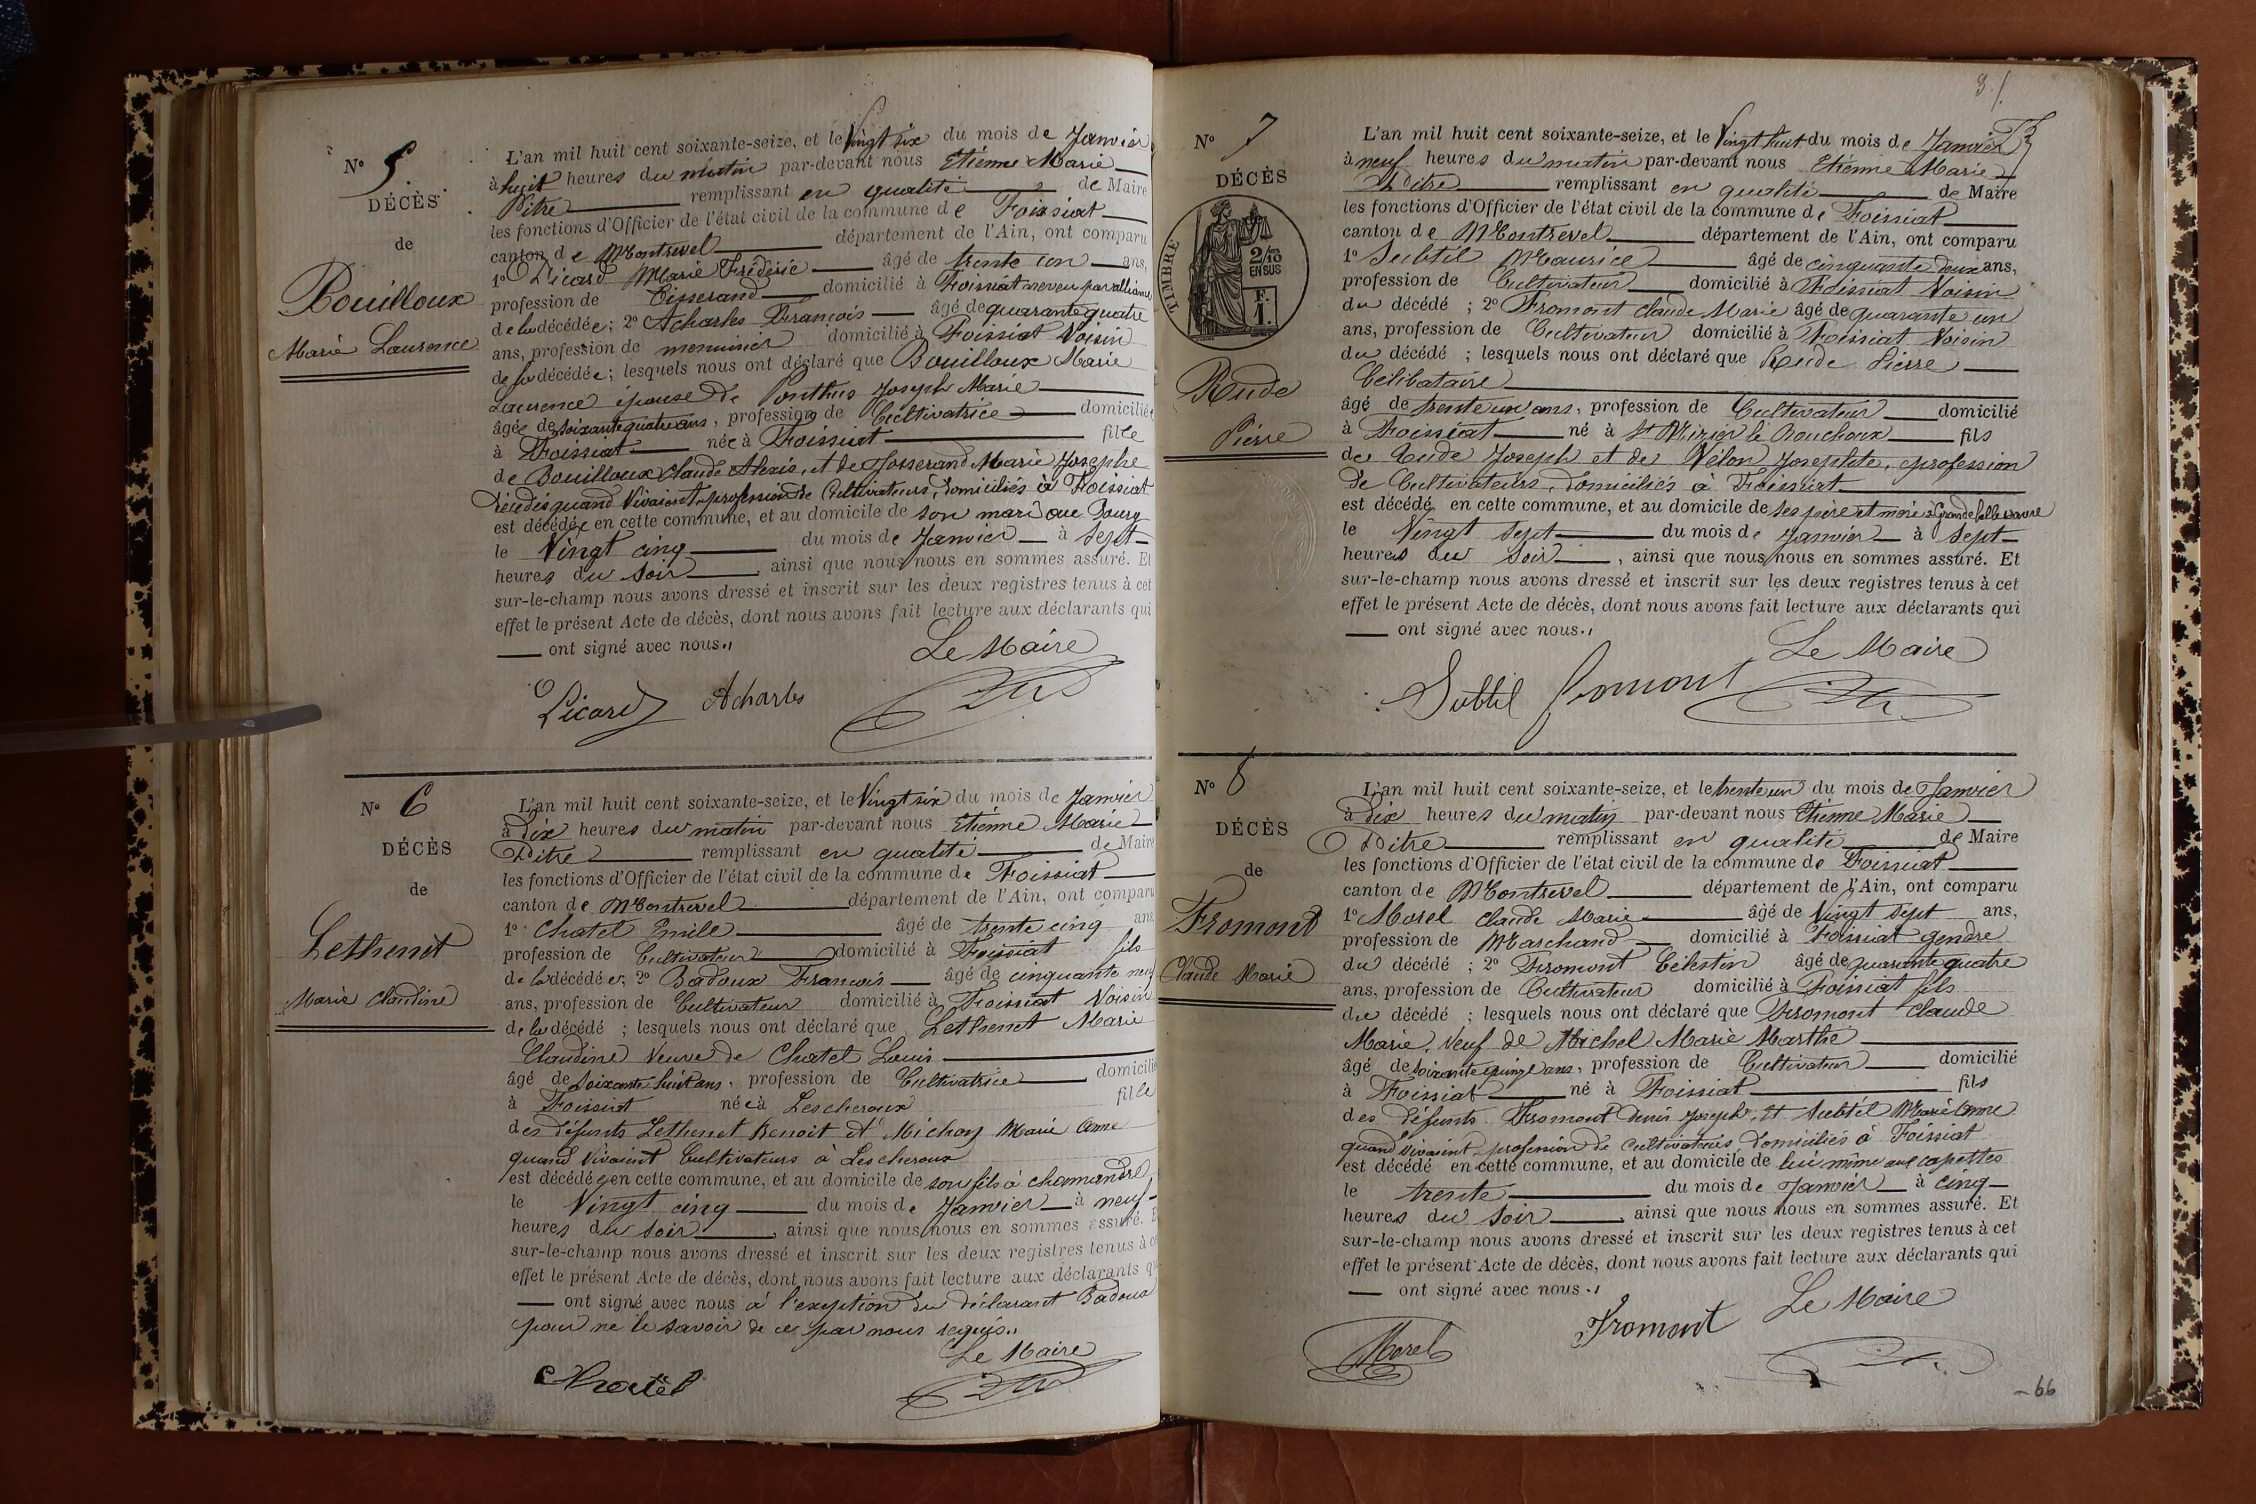 N° 5.
DÉCÈS
de
Bouilloux
Marie Laurence
L'an mil huit cent soixante-seize, et le Vingt six du mois de Janvier
à huit heures du matin par-devant nous Etienne Marie
Pitre remplissant en qualité de Maire
les fonctions d'Officier de l'état civil de la commune de Foissiat
canton de Montrevel département de l'Ain, ont comparu
1° Picard Marie Frédéric âgé de trente un ans,
profession de Tisserand domicilié à Foissiat neveu par alliance
de la décédée; 2° Acharles François âgé de quarante quatre
ans, profession de menuisier domicilié à Foissiat Voisin
de la décédée; lesquels nous ont déclaré que Bouilloux Marie
Laurence épouse de Ponthus Joseph Marie
âgée de soixante quatre ans, profession de Cultivatrice domiciliée
à Foissiat née à Foissiat fille
de Bouilloux Claude Alexis, et de Josserand Marie Josephe
décédés quand Vivaient profession de Cultivateurs, domiciliés à Foissiat
est décédée en cette commune, et au domicile de son mari au Bourg
le Vingt cinq du mois de Janvier à sept
heures du soir, ainsi que nous nous en sommes assuré. Et
sur-le-champ nous avons dressé et inscrit sur les deux registres tenus à cet
effet le présent Acte de décès, dont nous avons fait lecture aux déclarants qui
ont signé avec nous.
Le Maire
Picard Acharles
N° 6
DÉCÈS
de
Lethenet
Marie Claudine
L'an mil huit cent soixante-seize, et le Vingt six du mois de Janvier
à dix heures du matin par-devant nous Etienne Marie
Pitre remplissant en qualité de Maire
les fonctions d'Officier de l'état civil de la commune de Foissiat
canton de Montrevel département de l'Ain, ont comparu
1° Chatel Emile âgé de trente cinq ans
profession de Cultivateur domicilié à Foissiat fils
de la décédée; 2° Badoux François âgé de cinquante neuf
ans, profession de Cultivateur domicilié à Foissiat Voisin
de la décédé ; lesquels nous ont déclaré que Lethenet Marie
Claudine Veuve de Chatel Louis
âgé de soixante huit ans, profession de Cultivatrice domicilié
à Foissiat née à Lescheroux fille
des défunts Lethenet Benoit et Michon Marie Anne
quand vivaient Cultivateurs à Lescheroux
est décédée en cette commune, et au domicile de son fils à chamandre
le Vingt cinq du mois de Janvier à neuf
heures du soir, ainsi que nous nous en sommes assuré. E
sur-le-champ nous avons dressé et inscrit sur les deux registres tenus à ce
effet le présent Acte de décès, dont nous avons fait lecture aux déclarants q
ont signé avec nous à l'exeption du déclarant Badoux
pour ne le savoir de ce par nous requis.
Le Maire
Chatel
3
N° 7
DÉCÈS
TIMBRE
2/10
EN SUS
F.
1.
Rude
Pierre
L'an mil huit cent soixante-seize, et le Vingt huit du mois de Janvier
à neuf heures du matin par-devant nous Etienne Marie
Pitre remplissant en qualité de Maire
les fonctions d'Officier de l'état civil de la commune de Foissiat
canton de Montrevel département de l'Ain, ont comparu
1° Subtil Maurice âgé de cinquante deux ans,
profession de Cultivateur domicilié à Foissiat Voisin
du décédé ; 2° Fromont Claude Marie âgé de quarante un
ans, profession de Cultivateur domicilié à Foissiat Voisin
du décédé ; lesquels nous ont déclaré que Rude Pierre
Célibataire
âgé de trente un ans, profession de Cultivateur domicilié
à Foissiat né à St Nizier le Bouchoux fils
de Rude Joseph et de Vélon Josephte, profession
de Cultivateurs, domiciliés à Foissiat
est décédé en cette commune, et au domicile de ses père et mère à
le Vingt sept du mois de Janvier à Sept
heures du Soir, ainsi que nous nous en sommes assuré. Et
sur-le-champ nous avons dressé et inscrit sur les deux registres tenus à cet
effet le présent Acte de décès, dont nous avons fait lecture aux déclarants qui
ont signé avec nous.
Le Maire
Subtil fromont
N° 8
DÉCÈS
de
Fromont
Claude Marie
L'an mil huit cent soixante-seize, et le trente un du mois de Janvier
à Dix heures du matin par-devant nous Etienne Marie
Pitre remplissant en qualité de Maire
les fonctions d'Officier de l'état civil de la commune de Foissiat
canton de Montrevel département de l'Ain, ont comparu
1° Morel Claude Marie âgé de Vingt sept ans,
profession de Marchand domicilié à Foissiat gendre
du décédé ; 2° Fromont Célestin âgé de quarante quatre
ans, profession de Cultivateur domicilié à Foissiat fils
du décédé ; lesquels nous ont déclaré que Fromont Claude
Marie, Veuf de Michel Marie Marthe
âgé de soixante quinze ans, profession de Cultivateur domicilié
à Foissiat né à Foissiat fils
des défunts Fromont Denis Joseph, et Subtil Marie Anne
quand vivaient profession de Cultivateurs domiciliés à Foissiat
est décédé en cette commune, et au domicile de lui même aux capettes
le trente du mois de Janvier à cinq
heures du soir, ainsi que nous nous en sommes assuré. Et
sur-le-champ nous avons dressé et inscrit sur les deux registres tenus à cet
effet le présent Acte de décès, dont nous avons fait lecture aux déclarants qui
ont signé avec nous.
Le Maire
Morel Fromont
66